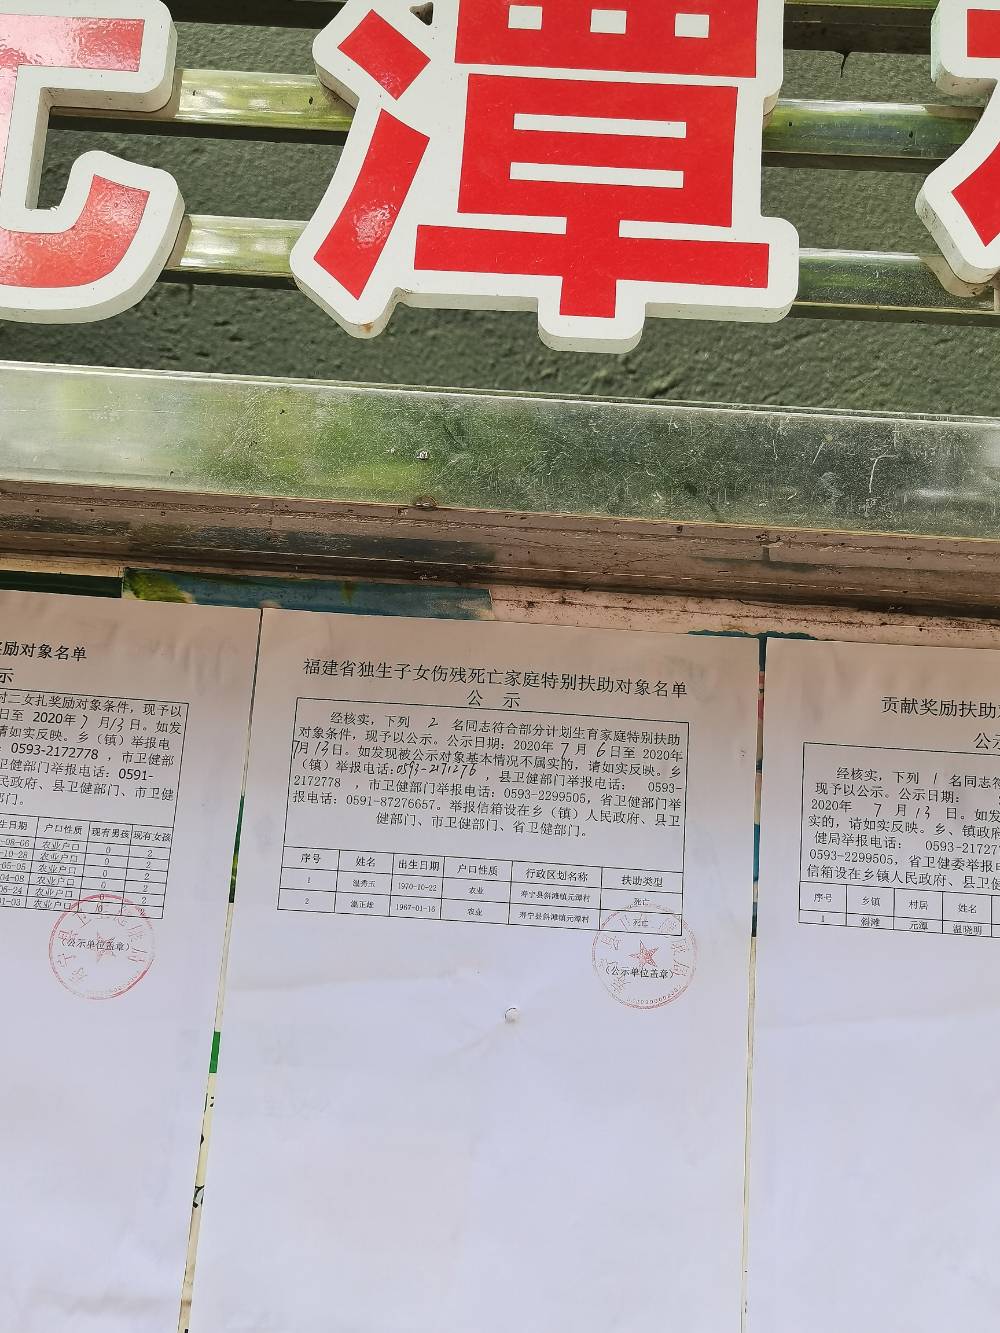 元潭村
奖励对象名单
示
村二女扎奖励对象条件，现予以
日至 2020年7月13日。如发
请如实反映。乡（镇）举报电
：0593-2172778 ，市卫健部
卫健部门举报电话：0591-
民政府、县卫健部门、市卫健
部门。
生日期 户口性质 现有男孩 现有女孩
-08-06 农业户口 0 2
-10-28 农业户口 0 2
-05-05 农业户口 0 2
-04-08 农业户口 0 2
-08-24 农业户口 0 2
-01-03 农业户口 0 2
（公示单位盖章）
福建省独生子女伤残死亡家庭特别扶助对象名单
公 示
经核实，下列 2 名同志符合部分计划生育家庭特别扶助
对象条件，现予以公示。公示日期：2020年7月6日至 2020年
7月13日。如发现被公示对象基本情况不属实的，请如实反映。乡
（镇）举报电话：0593-2171276 ，县卫健部门举报电话： 0593-
2172778 ，市卫健部门举报电话：0593-2299505，省卫健部门举
报电话：0591-87276657。举报信箱设在乡（镇）人民政府、县卫
健部门、市卫健部门、省卫健部门。
序号 姓名 出生日期 户口性质 行政区划名称 扶助类型
1 温秀玉 1970-10-22 农业 寿宁县斜滩镇元潭村 死亡
2 温正雄 1967-01-16 农业 寿宁县斜滩镇元潭村 死亡
（公示单位盖章）
贡献奖励扶助
公示
经核实，下列 1 名同志符
现予以公示。公示日期：
2020年 7月13 日。如发
实的，请如实反映。乡、镇政府
健局举报电话： 0593-217277
0593-2299505，省卫健委举报电
信箱设在乡镇人民政府、县卫健
序号 乡镇 村居 姓名
1 斜滩 元潭 温晓明